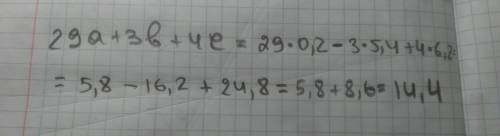 29a+3b+4e = 29·0,2-3·5,4+4·6,2=
= 5,8 - 16,2 + 24,8 = 5,8+8,6= 14,4